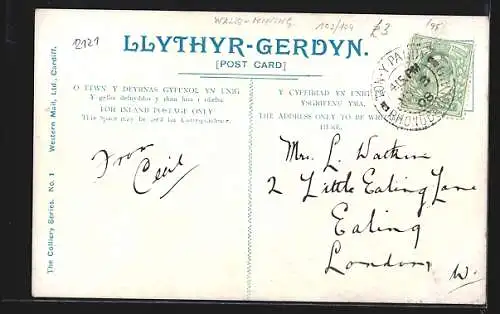 WALES - MINING
102/104
£3
12121
LLYTHYR-GERDYN.
[POST CARD]
O FEWN Y DEYRNAS GYFUNOL YN UNIG
Y gellir defnyddio y rhan hon i ysgrifenu.
FOR INLAND POSTAGE ONLY
This Space may be used for Correspondence.
Y CYFEIRIAD YN UNIG I'W
YSGRIFENU YMA.
THE ADDRESS ONLY TO BE WRITTEN
HERE.
The Colliery Series. No. 1 Western Mail, Ltd., Cardiff.
From
Cecil
Mrs. L. Watkin
2 Little Ealing Lane
Ealing
London
W.
TON-Y-PANDY
4.15 PM
08
RHONDDA